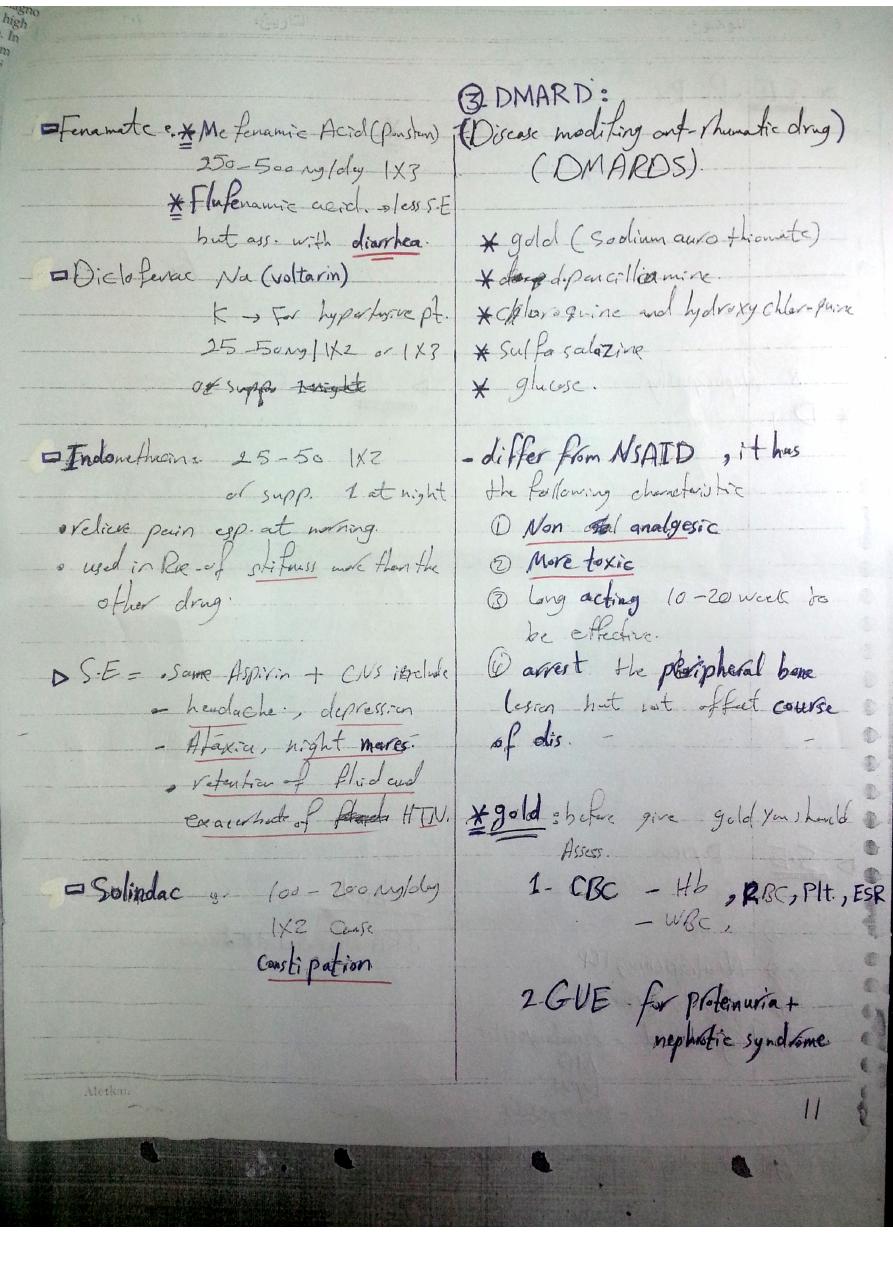 agno
high
. In
m
▭ Fenamate :. * Mefenamic Acid (Ponstan)
250-500 mg/day 1X3
* Flufenamic acid. → less S.E
but ass. with diarrhea.
▭ Diclofenac Na (voltarin)
K → For hypertensive pt.
25-50mg/ 1X2 or 1X3
or supp. 1 night
▭ Indomethacin: 25-50 1X2
or supp. 1 at night
• relieve pain esp. at morning.
• used in Rx of stifness more than the
other drug.
▷ S.E = • Same Aspirin + CNS include
- headache, depression
- Ataxia, night mares.
• retention of fluid and
exacerbate of HTN.
▭ Solindac 100-200 mg/day
1X2 Cause
Constipation
③ DMARD:
(Disease modifing ant-rhumatic drug)
(DMARDS).
* gold (Sodium auro thiomate)
* d.pencillamine.
* chloroquine and hydroxy chlor-quine
* Sulfa salazine
* glucose.
- differ from NSAID , it has
the following characteristic
① Non analgesic
② More toxic
③ Long acting 10-20 week to
be effective.
④ arrest the peripheral bone
lesion but not affect course
of dis.
* gold : before give gold you should
Assess.
1- CBC - Hb , RBC, Plt., ESR
- WBC,
2-GUE for proteinuria +
nephrotic syndrome
Alotkan.
11